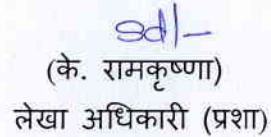 sd/-
(के. रामकृष्णा)
लेखा अधिकारी (प्रशा)